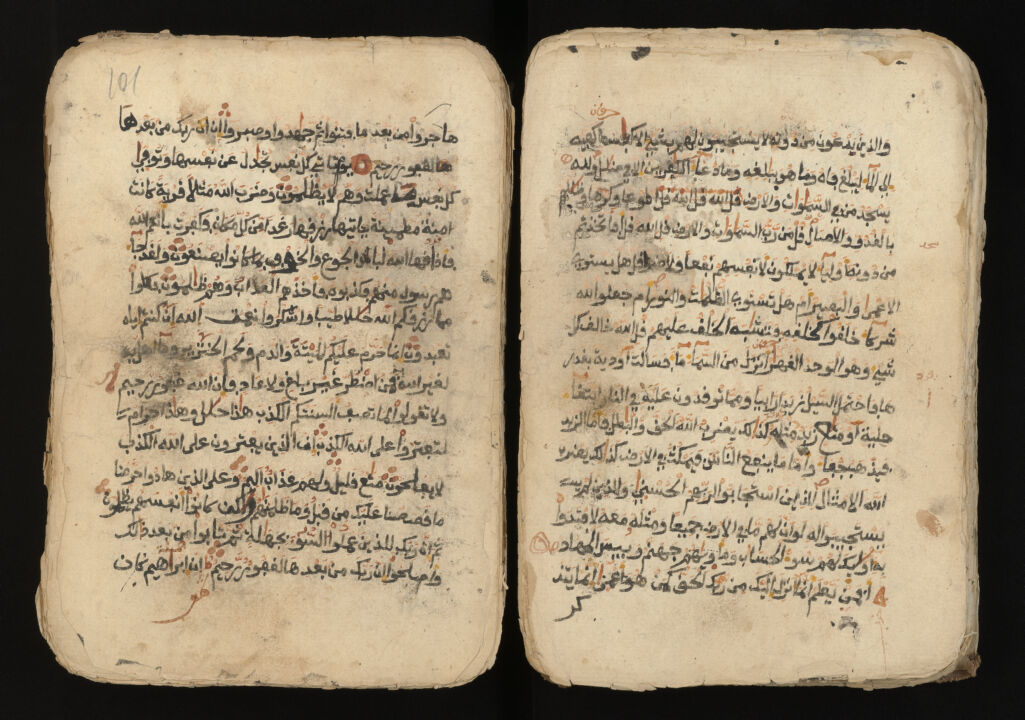 والذين يدعون من دونه لا يستجيبون لهم بشيء الا كبسط كفيه
الى الما ليبلغ فاه وما هو ببلغه وما دعا الكفرين الا في ضلل ولله
يسجد من في السموات والارض قل الله قل الله قل طوعا وكرها وظللهم
بالغدو والاصال قل من رب السموات والارض قل الله قل افاتخذتم
من دونه اوليا لا يملكون لانفسهم نفعا ولا ضرا قل هل يستوي
الاعمى والبصير ام هل تستوي الظلمات والنور ام جعلوا لله
شركا خلقوا كخلقه فتشبه الخلق عليهم قل الله خالق كل
شيء وهو الوحد القهر انزل من السما ما فسالت اودية بقدر
ها فاحتمل السيل زبدا رابيا ومما توقدون عليه في النار ابتغا
حلية او متع زبد مثله كذلك يضرب الله الحق والبطل فاما الزبد
فيذهب جفا واما ما ينفع الناس فيمكث في الارض كذلك يضرب
الله الامثال للذين استجابوا لربهم الحسنى والذين لم
يستجيبوا له لو ان لهم ما في الارض جميعا ومثله معه لافتدوا
به اوليك لهم سوء الحساب وماويهم جهنم وبيس المهاد
افمن يعلم انما انزل اليك من ربك الحق كمن هو اعمى انما يتذ
كر
101
هاجروا من بعد ما فتنوا ثم جهدوا وصبروا ان ربك من بعدها
لغفور رحيم يوم تاتي كل نفس تجدل عن نفسها وتوفى
كل نفس ما عملت وهم لا يظلمون وضرب الله مثلا قرية كانت
امنة مطمينة ياتيها رزقها رغدا من كل مكان فكفرت بانعم الله
فاذاقها الله لباس الجوع والخوف بما كانوا يصنعون ولقد جا
هم رسول منهم فكذبوه فاخذهم العذاب وهم ظلمون فكلوا
مما رزقكم الله حللا طيبا واشكروا نعمت الله ان كنتم اياه
تعبدون انما حرم عليكم الميتة والدم ولحم الخنزير وما اهل
لغير الله به فمن اضطر غير باغ ولا عاد فان الله غفور رحيم
ولا تقولوا لما تصف السنتكم الكذب هذا حلل وهذا حرام
لتفتروا على الله الكذب ان الذين يفترون على الله الكذب
لا يفلحون متع قليل ولهم عذاب اليم وعلى الذين هادوا حرمنا
ما قصصنا عليك من قبل وما ظلمنهم ولكن كانوا انفسهم يظلمون
ثم ان ربك للذين عملوا السوء بجهلة ثم تابوا من بعد ذلك
واصلحوا ان ربك من بعدها لغفور رحيم ان ابراهيم كان